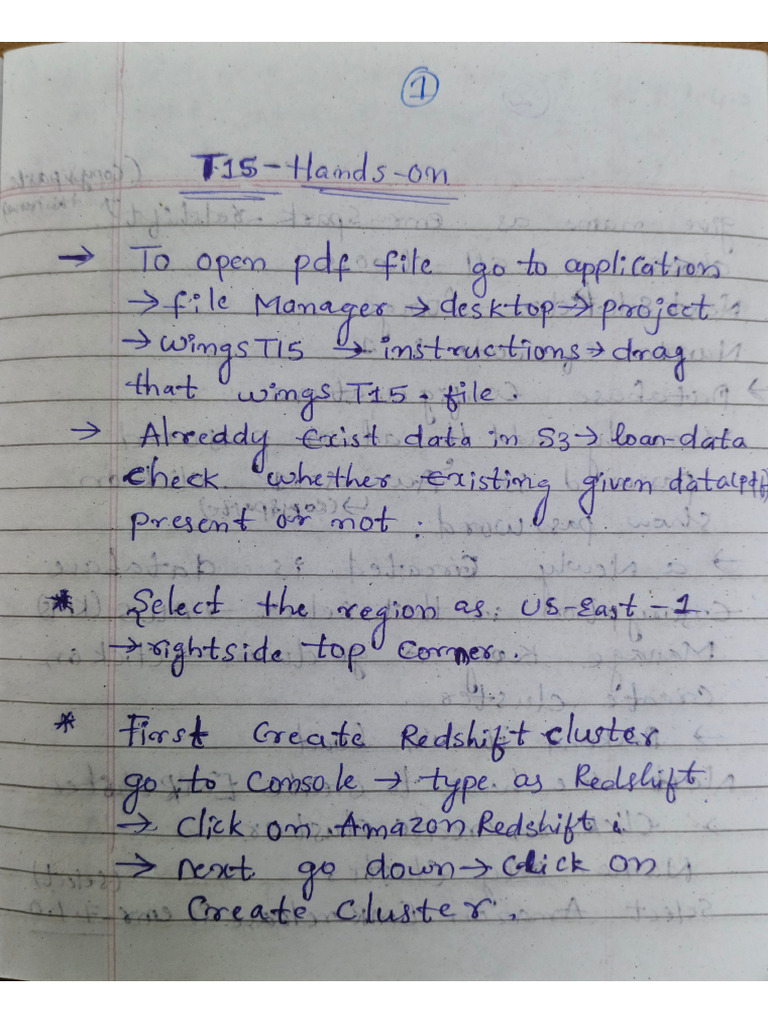 1
T15-Hands-on
→ To open pdf file go to application
→ file Manager → desktop → project
→ wingsT15 → instructions → drag
that wings T15. file.
→ Alreddy exist data in S3 → loan-data
check whether existing given data(pdf)
present or not:
* Select the region as: US-East-1
→ rightside top Corner.
* First Create Redshift cluster
go to Console → type as Redshift
→ click on Amazon Redshift
→ next go down → click on
Create Cluster.